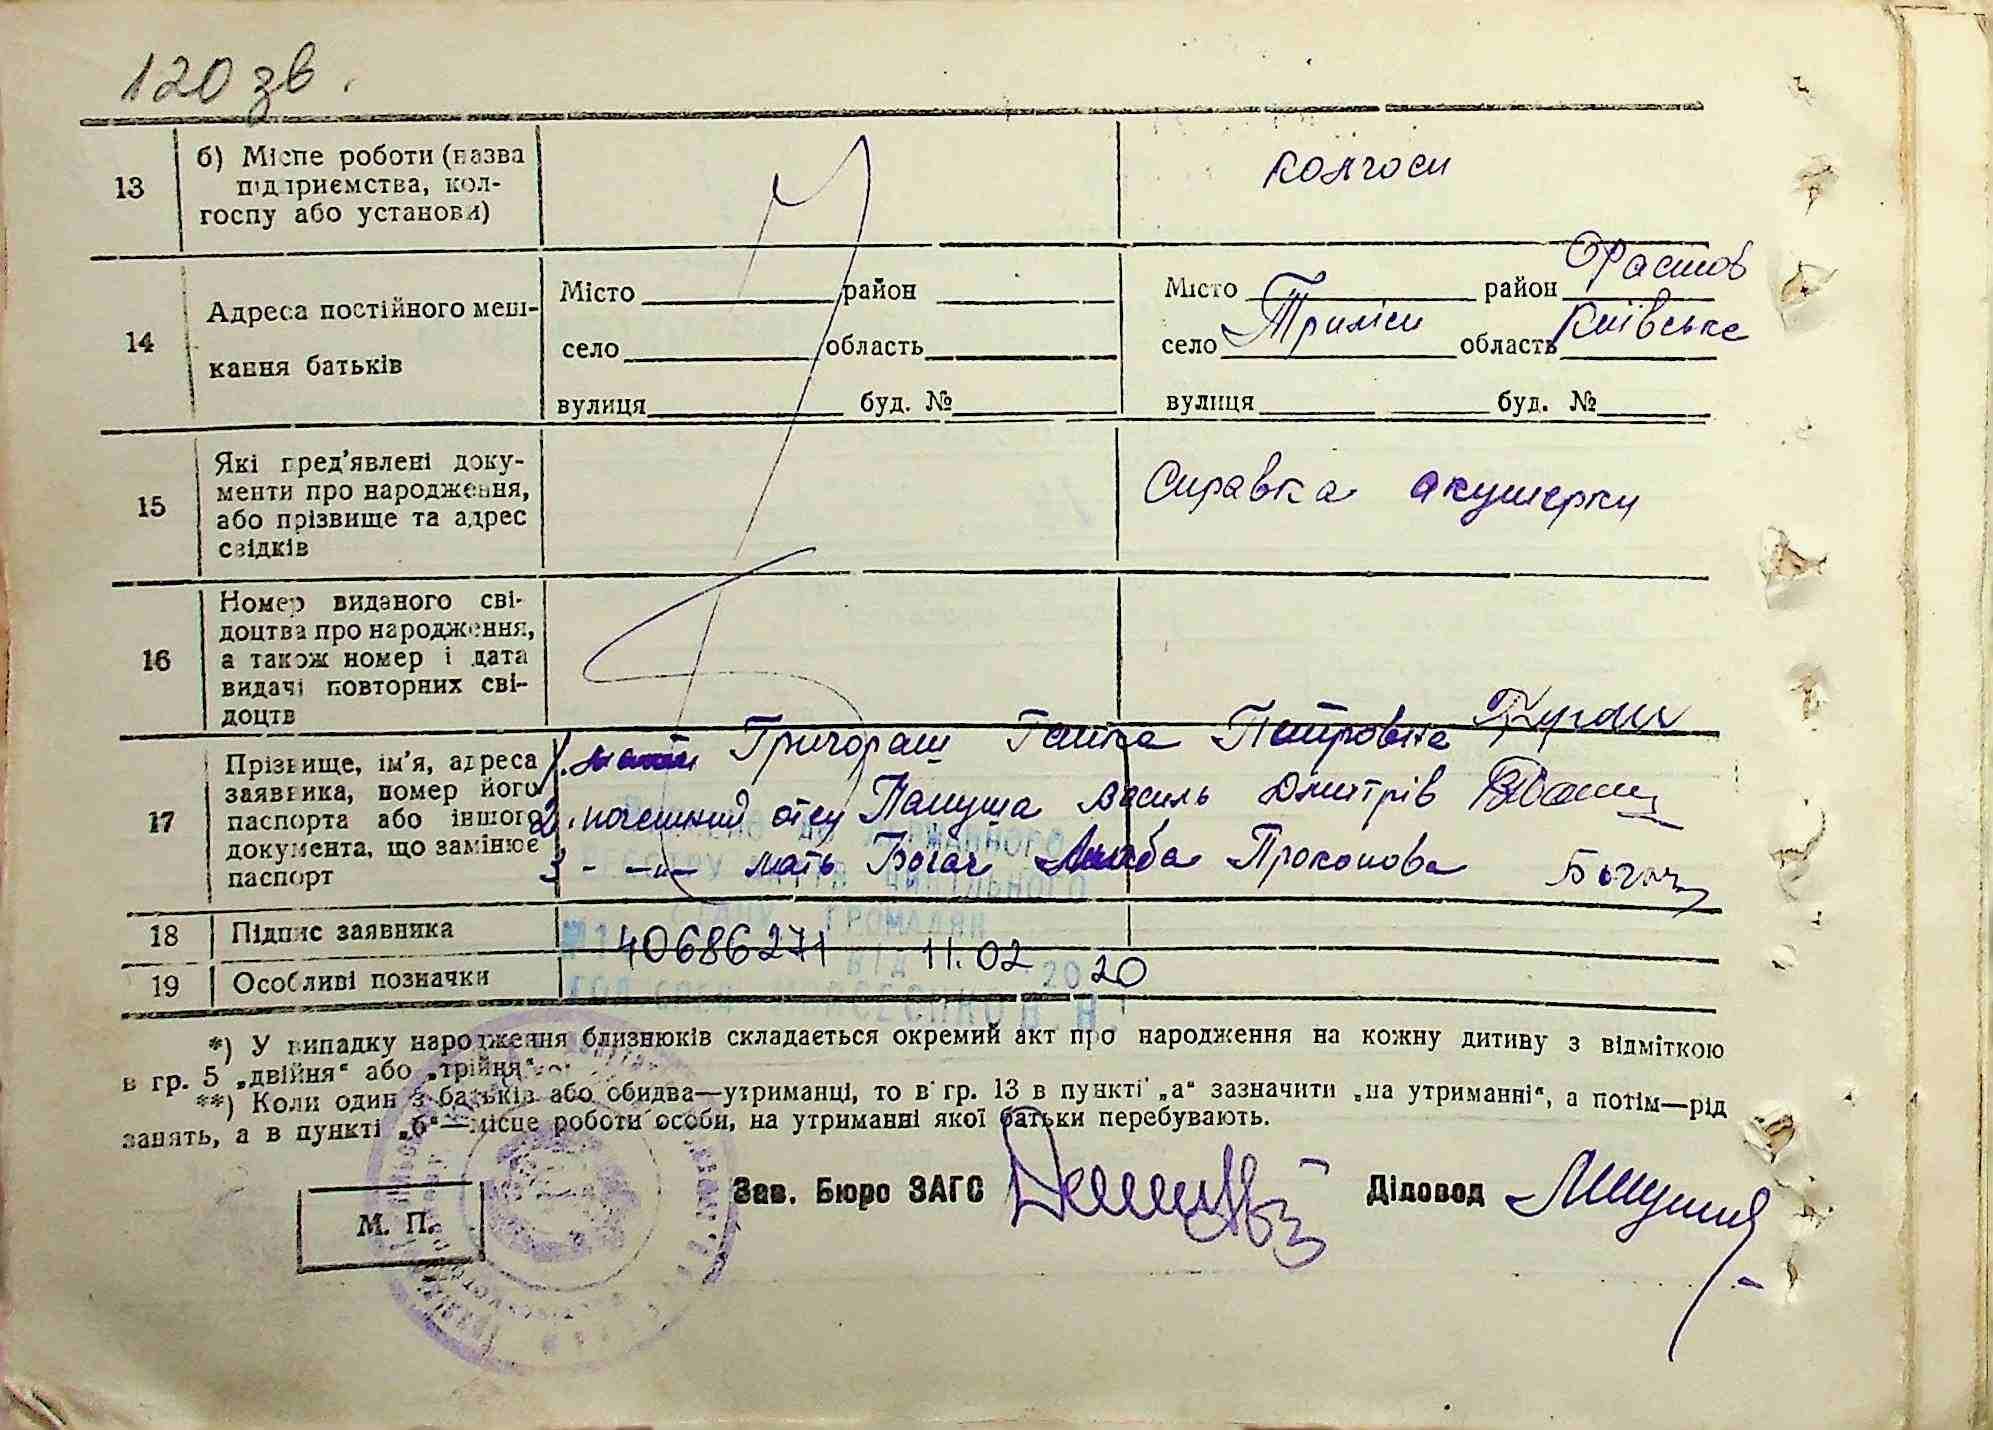 120 зв.
13
б) Місце роботи (назва
підприємства, кол-
госпу або установи)
колгосп
14
Адреса постійного меш-
кання батьків
Місто район
село область
вулиця буд. №
Місто район Фастов
село Триліси область Київське
вулиця буд. №
15
Які пред'явлені доку-
менти про народження,
або прізвище та адрес
свідків
Справка акушерки
16
Номер виданого сві-
доцтва про народження,
а також номер і дата
видачі повторних сві-
доцтв
17
Прізвище, ім'я, адреса
заявника, номер його
паспорта або іншого
документа, що замінює
паспорт
1. Григораш Ганка Петровна
2. почетний отец Папуша Василь Дмитрів
3 - -"- мать Богач Люба Прокопова Богач
18
Підпис заявника
19
Особливі позначки
ГРОМАДЯН
40686271 ВІД 11.02 2020
*) У випадку народження близнюків складається окремий акт про народження на кожну дитину з відміткою
в гр. 5 „двійня“ або „трійня“.
**) Коли один з батьків або обидва—утриманці, то в гр. 13 в пункті „а“ зазначити „на утриманні“, а потім—рід
занять, а в пункті „б“—місце роботи особи, на утриманні якої батьки перебувають.
М. П.
Зав. Бюро ЗАГС
Діловод